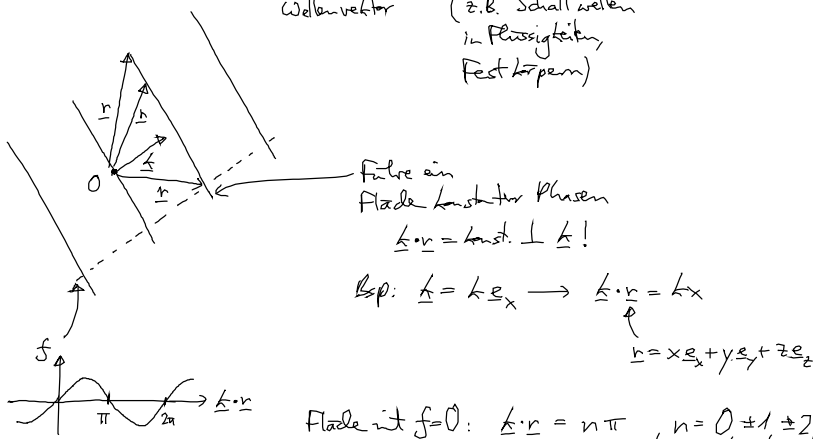 Wellenvektor (z.B. Schallwellen
in Flüssigkeiten,
Festkörpern)
r
r
k
r
0
Führe ein
Fläche konstanter Phasen
k·r = konst. ⊥ k!
Bsp: k = k e_x → k·r = kx
r = x e_x + y e_y + z e_z
f
π 2π k·r
Fläche mit f=0: k·r = nπ , n = 0, ±1, ±2,